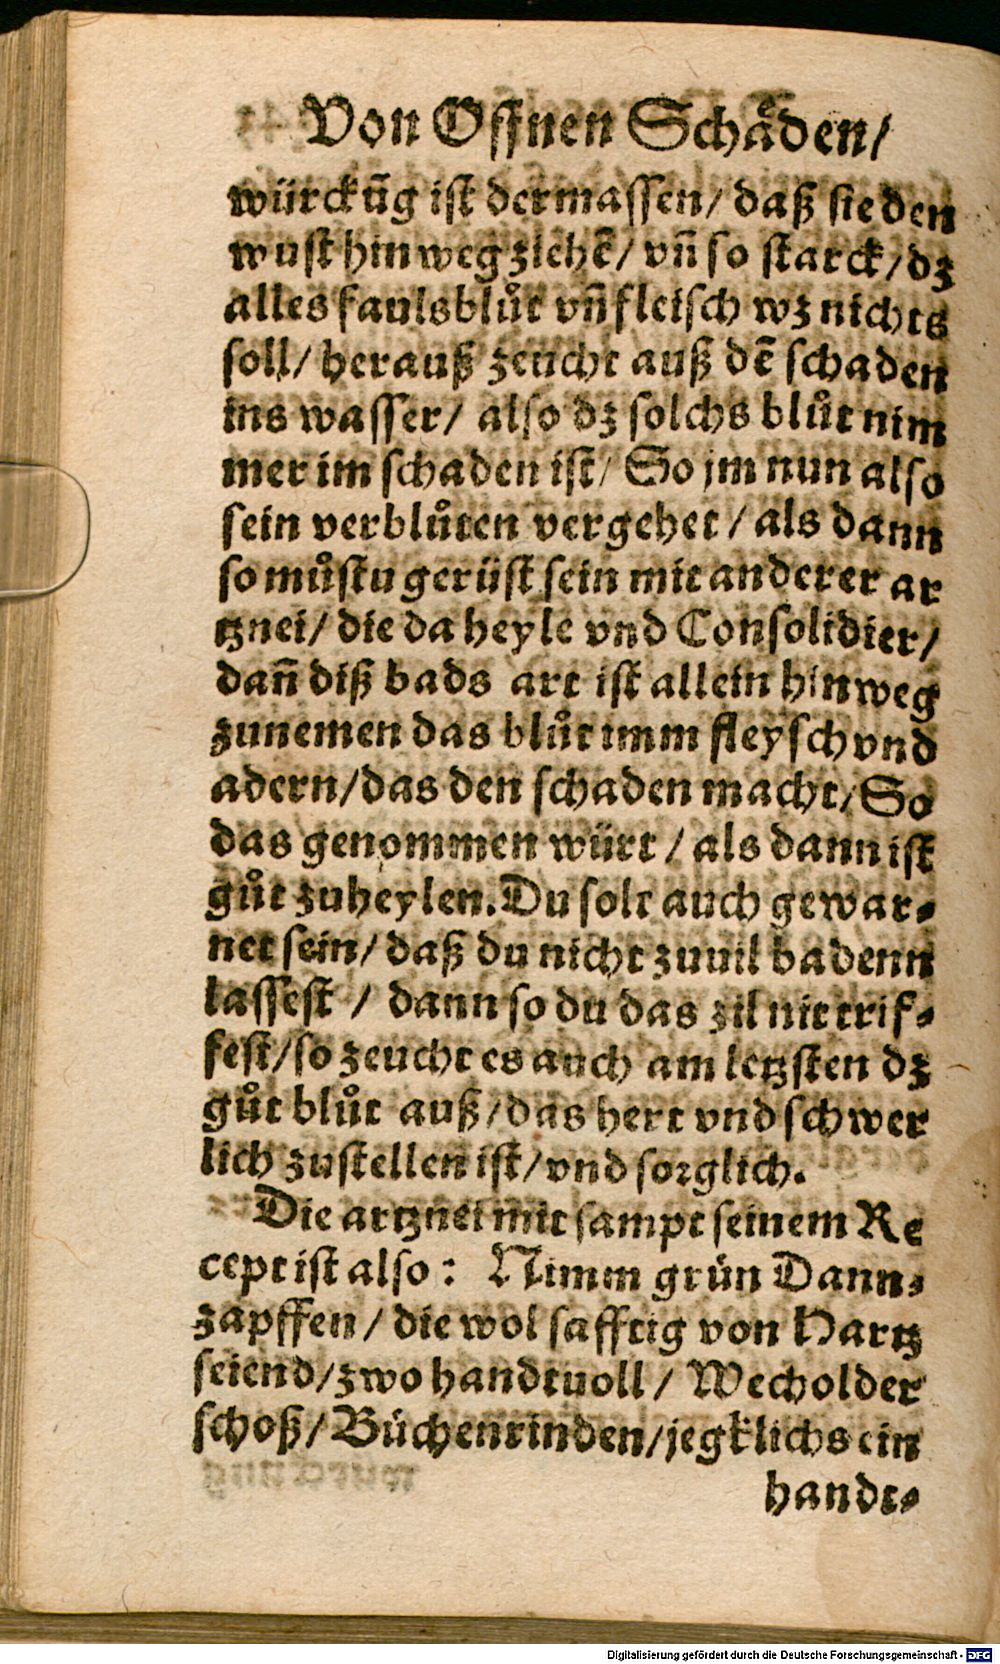 Von Offnen Schåden/
würckũg ist dermassen/ daß sie den
wust hin weg ziehẽ/ vñ so starck/ dz
alles faulsblůt vñ fleisch wz nichts
soll/ herauß zeucht auß dẽ schaden
ins wasser/ also dz solchs blůt nim
mer im schaden ist/ So jm nun also
sein verblůten vergehet/ als dann
so můstu gerüst sein mit anderer ar
tznei/ die da heyle vnd Consolidier/
dañ diß bads art ist allein hinweg
zunemen das blůt imm fleysch vnd
adern/ das den schaden macht/ So
das genommen würt/ als dann ist
gůt zuheylen. Du solt auch gewar⸗
net sein/ daß du nicht zuuil badenn
lassest / dann so du das zil nit trif⸗
fest/ so zeucht es auch am letzsten dz
gůt blůt auß/ das hert vnd schwer
lich zustellen ist/ vnd sorglich.
Die artznei mit sampt seinem Re
cept ist also: Nimm grün Dann⸗
zapffen/ die wol safftig von Hartz
seiend/ zwo handtuoll/ Wecholder
schoß/ Büchenrinden/ jegklichs ein
handt⸗
Digitalisierung gefördert durch die Deutsche Forschungsgemeinschaft - DFG